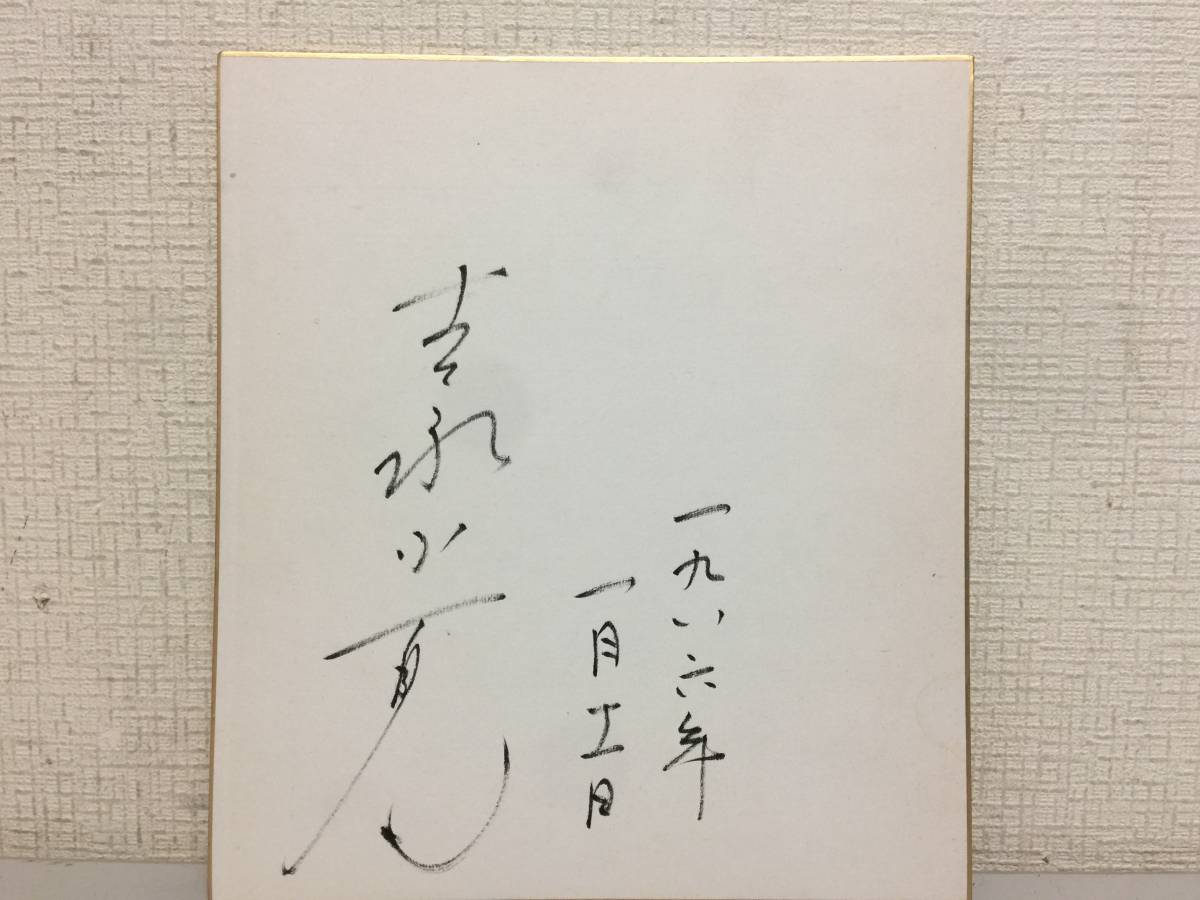 一九八六年
一月十一日
吉永小百合